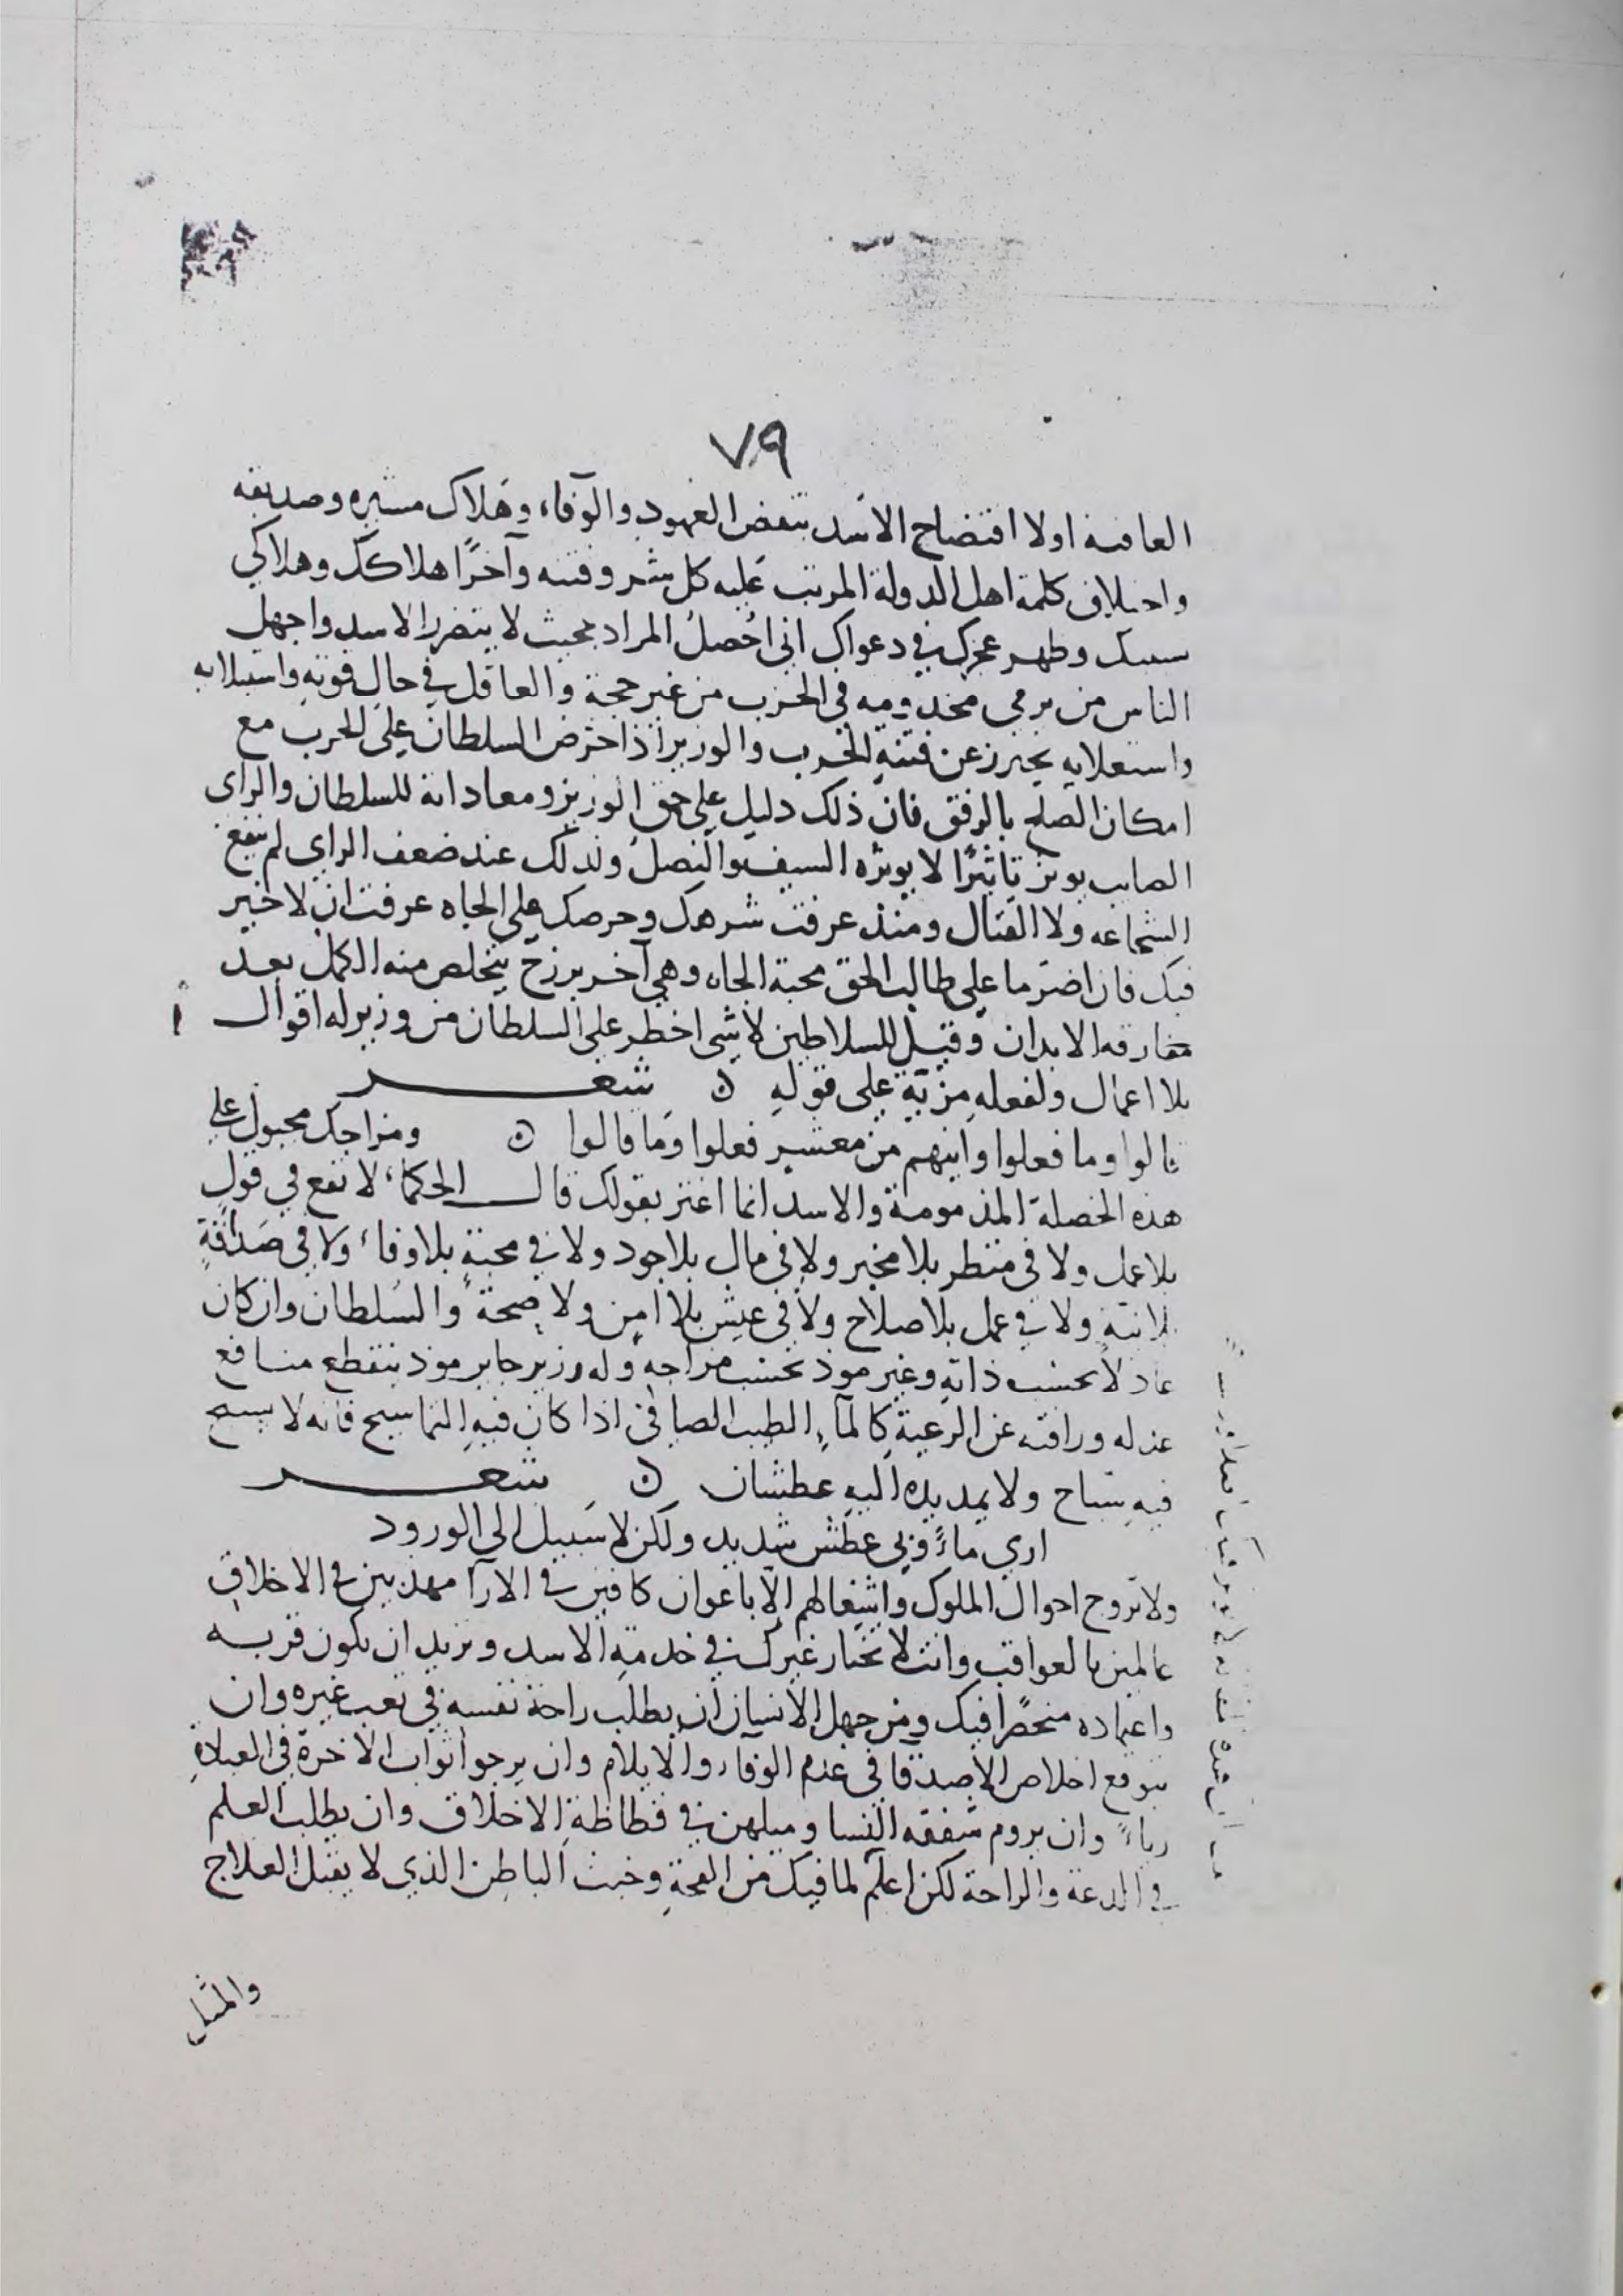 ٧٩
العاقبة اولا افتضاح الاسد بنقض العهود والوفاء وهلاك مشيره وصديقه
واختلاف كلمة اهل الدولة المرتب عليه كل شر وفتنه وآخرًا هلاكك وهلاكي
بسببك وظهر عجزك في دعواك اني احُصلُ المراد بحيث لا يتضرر الاسد واجهل
الناس من يرمي مخدومه في الحرب من غير حجة والعاقل في حال قوته واستيلايه
واستعلايه يحترز عن فتنة الحرب والوزير اذا حرض السلطان على الحرب مع
امكان الصلح بالرفق فان ذلك دليل على حمق الوزير ومعاداته للسلطان والراى
الصايب يوثر تاثيرًا لا يوثره السيف والنصل ولذلك عند ضعف الراي لم ينفع
الشجاعه ولا القتال ومنذ عرفت شرهك وحرصك على الجاه عرفت ان لا خير
فيك فان اضر ما على طالب الحق محبة الجاه وهي آخر برزخ يتخلص منه الكمل بعد
مفارقه الابدان وقيل للسلاطين لا شى اخطر على السلطان من وزير له اقوال
بلا اعمال ولفعله مزية على قوله ن شعر
قالوا وما فعلوا واينهم من معشر فعلوا وما قالوا ن ومزاجك مجبول على
هذه الخصلة المذمومة والاسد انما اغتر بقولك قال الحكماء لا نفع في قول
بلا عمل ولا في منظر بلا مخبر ولا في مال بلا جود ولا في محبة بلا وفاء ولا في صداقةٍ
بلا نية ولا في عمل بلا صلاح ولا في عيش بلا امن ولا صحة والسلطان وان كان
عادلا بحسب ذاته وغير موذ بحسب مزاجه وله وزير جاير موذ ينقطع منافع
عدله ورافته عن الرعية كالماء الطيب الصافي اذا كان فيه التماسيح فانه لا يسبح
فيه سباح ولا يمد يده اليه عطشان ن شعر
ارى ماءً وبي عطش شديد ولكن لا سبيل الى الورود
ولا تروج احوال الملوك واشغالهم الا باعوان كافين في الارآ مهذبين في الاخلاق
عالمين بالعواقب وانت لا تختار غيرك في خدمة الاسد وتريد ان يكون قربه
واعتماده منحصرًا فيك ومن جهل الانسان ان يطلب راحة نفسه في تعب غيره وان
يتوقع اخلاص الاصدقا في عدم الوفاء والايلام وان يرجوا ثواب الاخرة في العبادة
رياءً وان يروم شفقه النسا وميلهن في فظاظةِ الاخلاق وان يطلب العلم
في الدعة والراحة لكن اعلم لما فيك من القحة وخبث الباطن الذي لا يقبل العلاج
والمثل